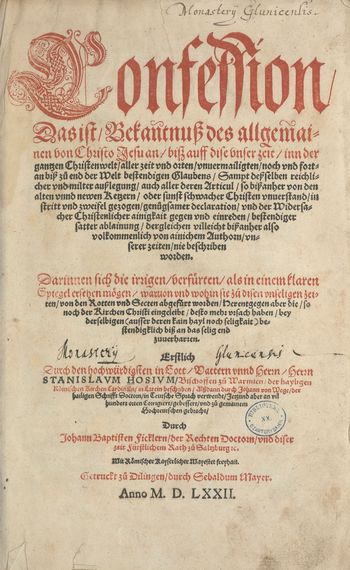 Monasterij Glunicensis.
Confession/
Das ist/ Bekañtnuß des allgemai-
nen von Christo Jesu an/ biß auff dise vnser zeit/ inn der
gantzen Christenwelt/ aller zeit vnd orten/ vnuermailigten/ noch vnd fort-
an biß zů end der Welt bestendigen Glaubens/ Sampt desselben reichli-
cher vnd milter außlegung/ auch aller deren Articul/ so bißanher von den
alten vnnd newen Ketzern/ oder sunst schwacher Christen vnuerstand/ in
streitt vnd zweifel gezogen/ genůgsamer declaration/ vnd der Widersa-
cher Christenlicher ainigkait gegen vnd einreden/ bestendiger
satter ablainung/ dergleichen villeicht bißanher also
volkommenlich von ainichem Authorn/ vn-
serer zeiten/ nie beschriben
worden.
Darinnen sich die irrigen/ verfürten/ als in einem klaren
Spiegel ersehen mögen/ warvon vnd wohin sie zů disen müeligen zei-
ten/ von den Rotten vnd Secten abgefürt worden/ Herentgegen aber die/ so
noch der Kirchen Christi eingeleibt/ desto mehr vrsach haben/ bey
derselbigen (ausser deren kain hayl noch seligkait) be-
stendigklich biß an das selig end
zuuerharren.
Monasterij Erstlich Glunicensis
Durch den hochwürdigsten in Gott/ Vattern vnnd Herrn/ Herrn
STANISLAVM HOSIVM/ Bischoffen zů Warmien/ der hayligen
Römischen Kirchen Cardinaln/ in Latein beschriben/ Alsdann durch Johann von Wege/ der
heiligen Schrifft Doctorn/ in Teutsche Sprach verwendt/ Jetzund aber an vil
hundert orten Corrigiert/ gebessert/ vnd zů gemainem
Hochteutschen gebracht/
Durch
Johann Baptisten Ficklern/ der Rechten Doctorn/ vnd diser
zeit Fürstlichem Rath zů Saltzburg ꝛc.
Mit Römischer Kayserlicher Mayestet freyhait.
Getruckt zů Dilingen/ durch Sebaldum Mayer.
Anno M. D. LXXII.